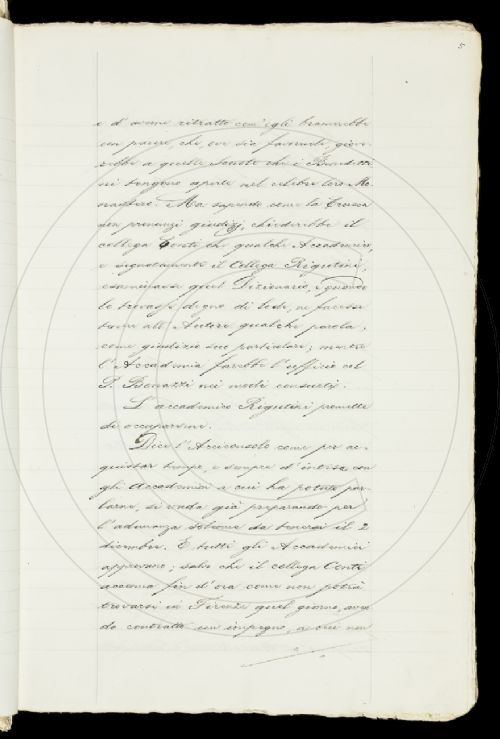 5
e d'averne ritratto com'egli bramerebbe
un parere, che, ove sia favorevole, giove-
rebbe a quelle Scuole che i Benedettini
vi tengono aperte nel celebre loro Mo-
nastero. Ma sapendo come la Crusca
non pronunzi giudizj, chiederebbe il
collega Conti che qualche Accademico,
e segnatamente il Collega Rigutini,
esaminasse quel Dizionario, e quando
lo trovasse degno di lode, ne facesse
all'Autore qualche parola,
come giudizio suo particolare; mentre
l'Accademia farebbe l'ufficio col
P. Bonazzi nei modi consueti.
L'accademico Rigutini promette
di occuparsene.
Dice l'Arciconsolo come per ac-
quistar tempo, e sempre d'intesa con
gli Accademici a cui ha potuto par-
larne, si vada già preparando per
l'adunanza solenne da tenersi il 2
dicembre. E tutti gli Accademici
approvano; salvo che il collega Conti
accenna fin d'ora come non potrà
trovarsi in Firenze quel giorno, aven-
do contratto un impegno, a cui non